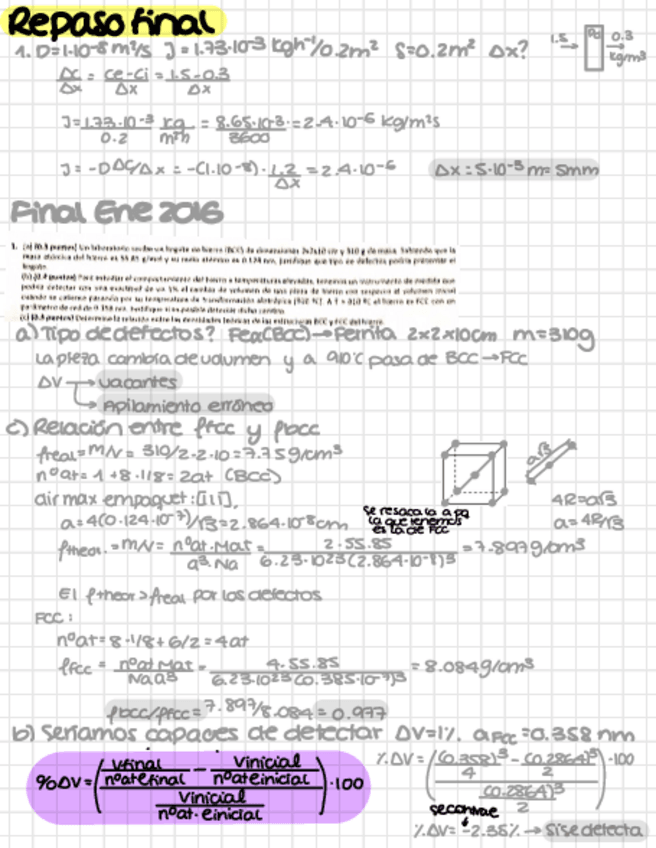 Repaso final
1. D=1·10⁻⁸ m²/s J = 1.73·10⁻³ kgh⁻¹/0.2m² S=0.2m² Δx?
1.5 → Pd → 0.3 kg/m³
ΔC/Δx = (Ce-Ci)/Δx = (1.5-0.3)/Δx
J = (1.73·10⁻³/0.2) kg/m²h = 8.65·10⁻³/3600 = 2.4·10⁻⁶ kg/m²s
J = -D ΔC/Δx = -(1·10⁻⁸)·1.2/Δx = 2.4·10⁻⁶ Δx = 5·10⁻³ m = 5mm
Final Ene 2016
1. (a) (0.3 puntos) Un laboratorio recibe un lingote de hierro (BCC) de dimensiones 2x2x10 cm y 310 g de masa. Sabiendo que la
masa atómica del hierro es 55.85 g/mol y su radio atómico es 0.124 nm, justifique que tipo de defectos podría presentar el
lingote.
(b) Para estudiar el comportamiento del hierro a temperaturas elevadas, tenemos un instrumento de medida que
podría detectar con una exactitud de un 1% el cambio de volumen de una pieza de hierro con respecto al volumen inicial
cuando se calienta pasando por su temperatura de transformación alotrópica
(c) Determine la relación entre las densidades teóricas de las estructuras BCC y FCC del hierro.
a) Tipo de defectos? Feα(BCC) → Ferrita 2x2x10cm m=310g
La pieza cambia de volumen y a 910°C pasa de BCC → FCC
ΔV → vacantes
→ Apilamiento erróneo
c) Relación entre ρfcc y ρbcc
ρreal = m/V = 310/2·2·10 = 7.75g/cm³
nºat = 1 + 8·1/8 = 2at (BCC)
dir max empaquet: [111],
a√3
4R=a√3
a=4R/√3
a = 4(0.124·10⁻⁷)/√3 = 2.864·10⁻⁸cm
se resaca la a pq
la que tenemos
es la de FCC
ρtheor. = m/V = nºat·Mat/a³·Na = 2·55.85/6.23·10²³(2.864·10⁻⁸)³ = 7.897g/cm³
El ρtheor > ρreal por los defectos
FCC:
nºat = 8·1/8 + 6/2 = 4at
ρFCC = nºat Mat/Na a³ = 4·55.85/6.23·10²³ (0.385·10⁻⁷)³ = 8.084g/cm³
ρbcc/ρfcc = 7.897/8.084 = 0.977
b) Seríamos capaces de detectar ΔV=1%. aFCC=0.358 nm
%ΔV = ((Vfinal/nºat e final - Vinicial/nºat e inicial)/(Vinicial/nºat. e inicial))·100
%ΔV = (((0.358)³/4 - (0.2864)³/2)/((0.2864)³/2))·100
se contrae
%ΔV = -2.35% → Si se detecta